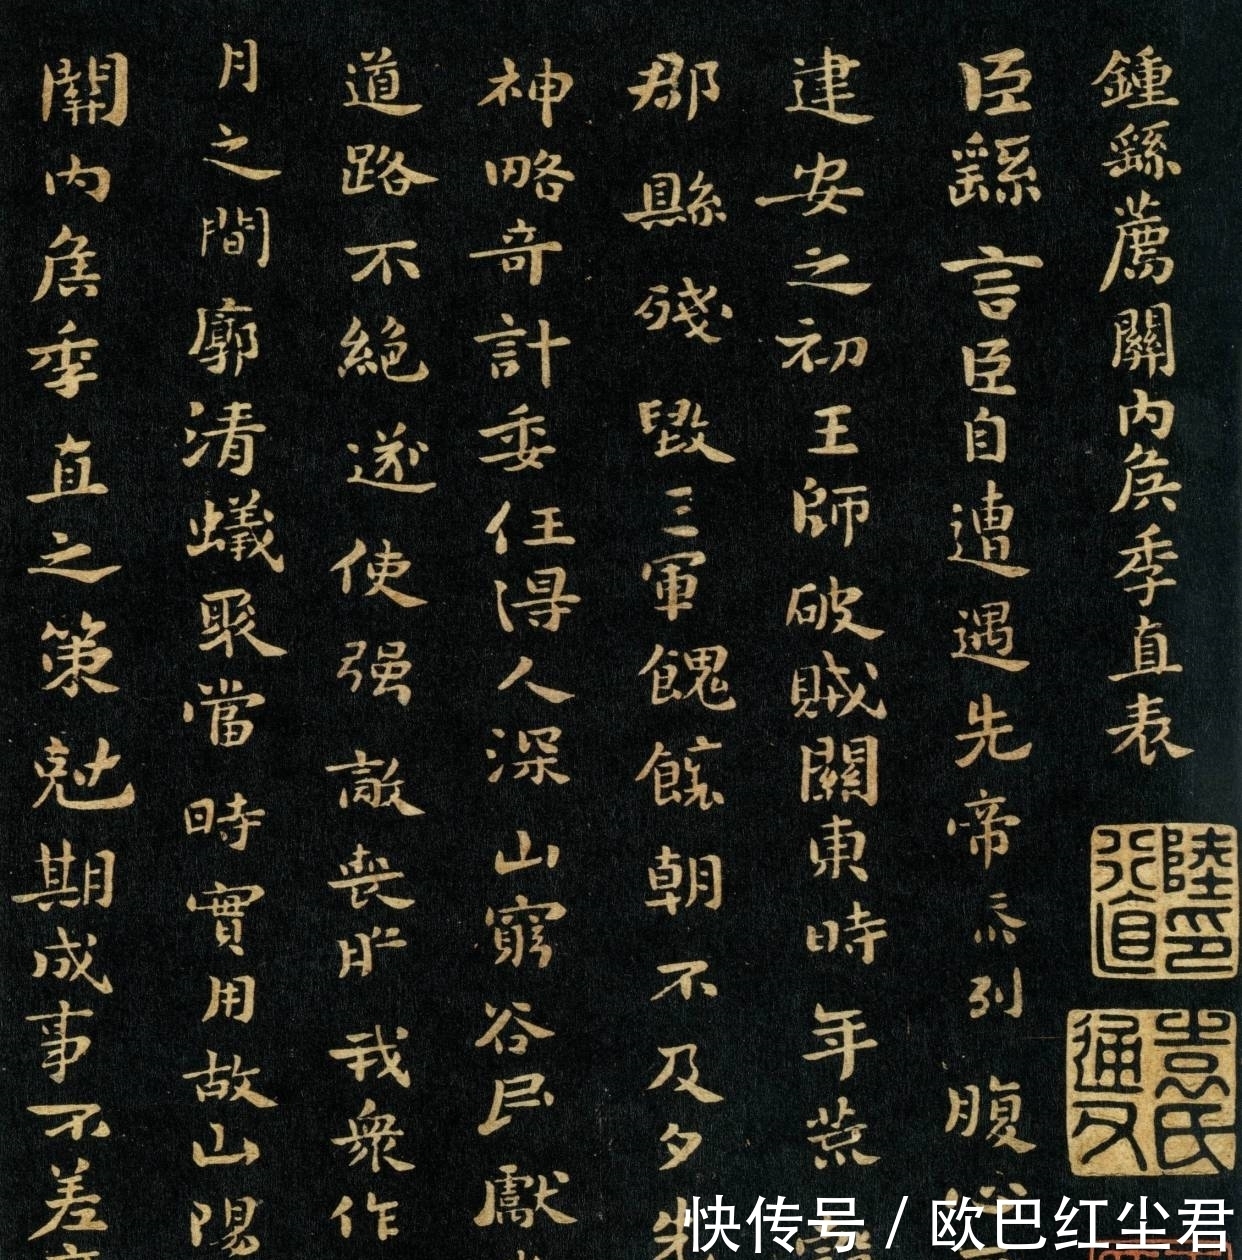 鍾繇薦關內侯季直表
臣繇言臣自遭遇先帝忝列腹
建安之初王師破賊關東時年荒
郡縣殘毀三軍餽饟朝不及夕先
神略奇計委任得人深山窮谷民獻
道路不絕遂使强敵喪膽我衆作
月之間廓清蟻聚當時實用故山陽
關內侯季直之策尅期成事不差
陸印行直
快传号 / 欧巴红尘君